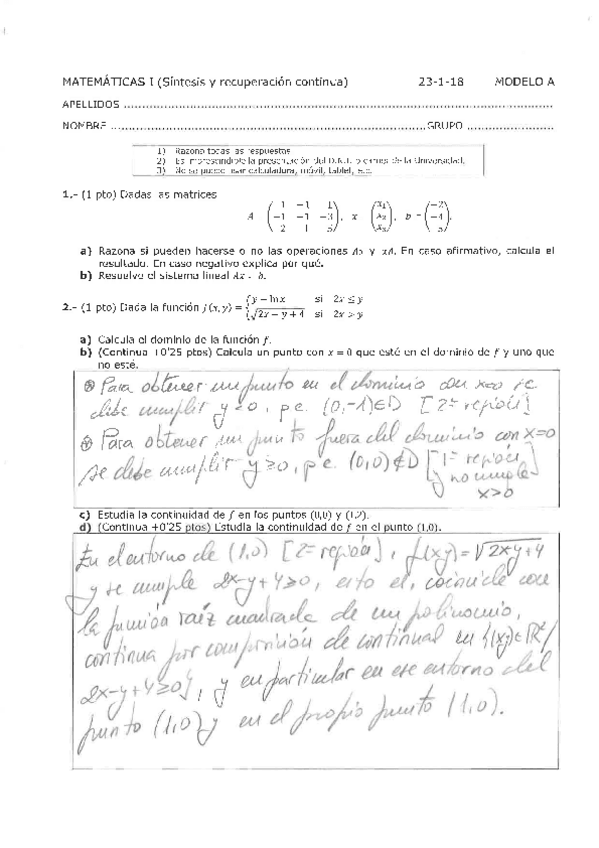 MATEMÁTICAS I (Síntesis y recuperación continua) 23-1-18 MODELO A
APELLIDOS ................................................................................
NOMBRE ................................................................GRUPO ........................
1) Razona todas las respuestas
2) Es imprescindible la presentación del D.N.I. o carnet de la Universidad.
3) No se puede usar calculadora, móvil, tablet, etc.
1.- (1 pto) Dadas las matrices
A = ( 1 −1 1 ; −1 −1 −3 ; 2 1 5 ), x = ( x₁ ; x₂ ; x₃ ), b = ( −2 ; −4 ; 5 ).
a) Razona si pueden hacerse o no las operaciones Ax y xA. En caso afirmativo, calcula el
resultado. En caso negativo explica por qué.
b) Resuelve el sistema lineal Ax = b.
2.- (1 pto) Dada la función f(x,y) = { y − ln x si 2x ≤ y
√2x − y + 4 si 2x > y
a) Calcula el dominio de la función f.
b) (Continua +0'25 ptos) Calcula un punto con x = 0 que esté en el dominio de f y uno que
no esté.
⊗ Para obtener un punto en el dominio con x=0 se
debe cumplir y<0, p.e. (0,-1)∈D [2ª región]
⊗ Para obtener un punto fuera del dominio con X=0
se debe cumplir y≥0, p.e. (0,0)∉D [1ª región
y no cumple
x>0
c) Estudia la continuidad de f en los puntos (0,0) y (1,2).
d) (Continua +0'25 ptos) Estudia la continuidad de f en el punto (1,0).
En el entorno de (1,0) [2ª región], f(x,y)=√2x-y+4
y se cumple 2x-y+4≥0, esto es, coincide con
la función raíz cuadrada de un polinomio,
continua por composición de continuas en {(x,y)∈ℝ²/
2x-y+4≥0}, y en particular en ese entorno del
punto (1,0) y en el propio punto (1,0).